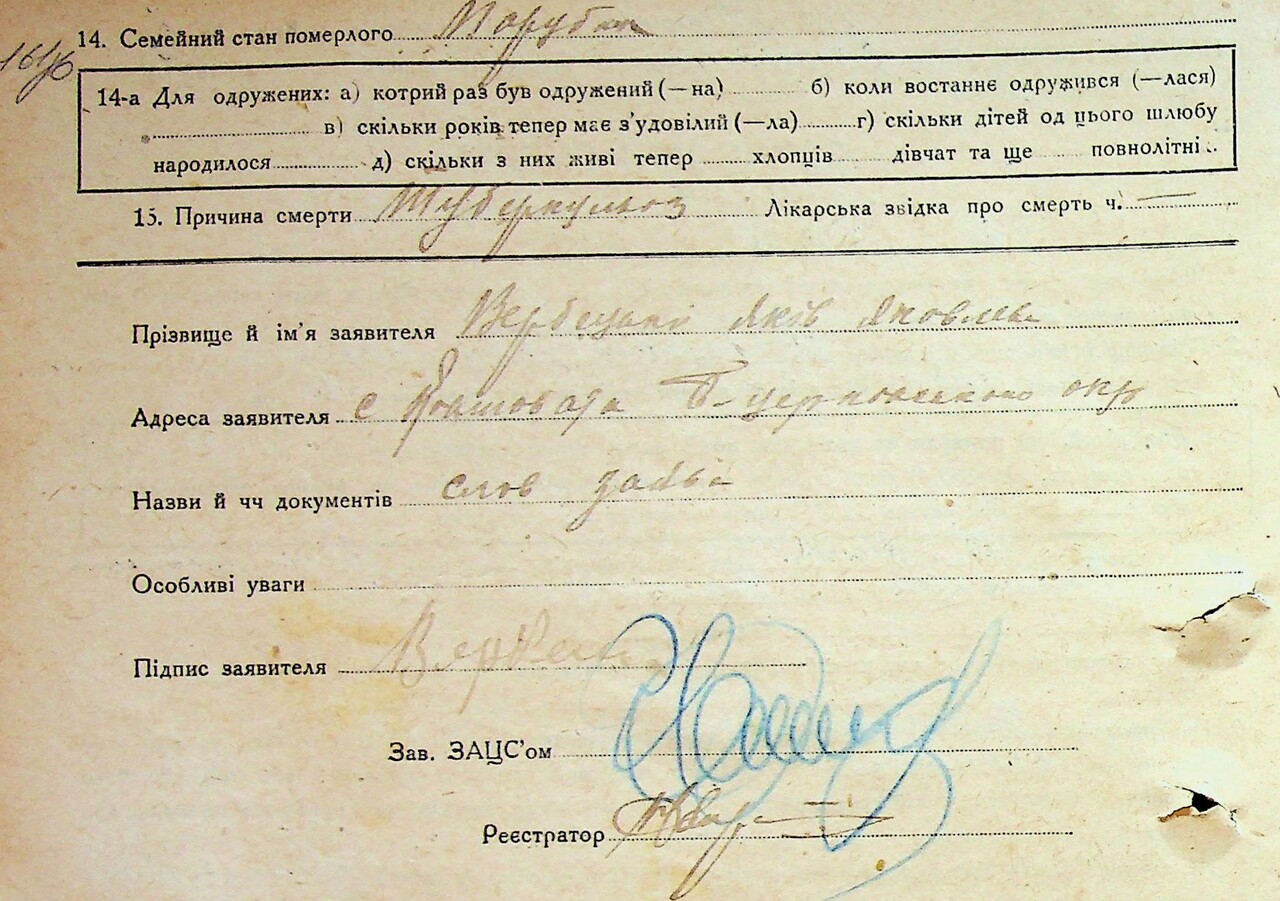 14. Семейний стан померлого Парубок
14-а Для одружених: а) котрий раз був одружений (—на) б) коли востаннє одружився (—лася)
в) скільки років тепер має з’удовілий (—ла) г) скільки дітей од цього шлюбу
народилося д) скільки з них живі тепер хлопців дівчат та ще повнолітні
15. Причина смерти Туберкульоз Лікарська звідка про смерть ч. —
Прізвище й ім’я заявителя Вербецький Яків Яковлев
Адреса заявителя с Б-церковського окр
Назви й чч документів слов заява
Особливі уваги
Підпис заявителя
Зав. ЗАЦС’ом
Реєстратор